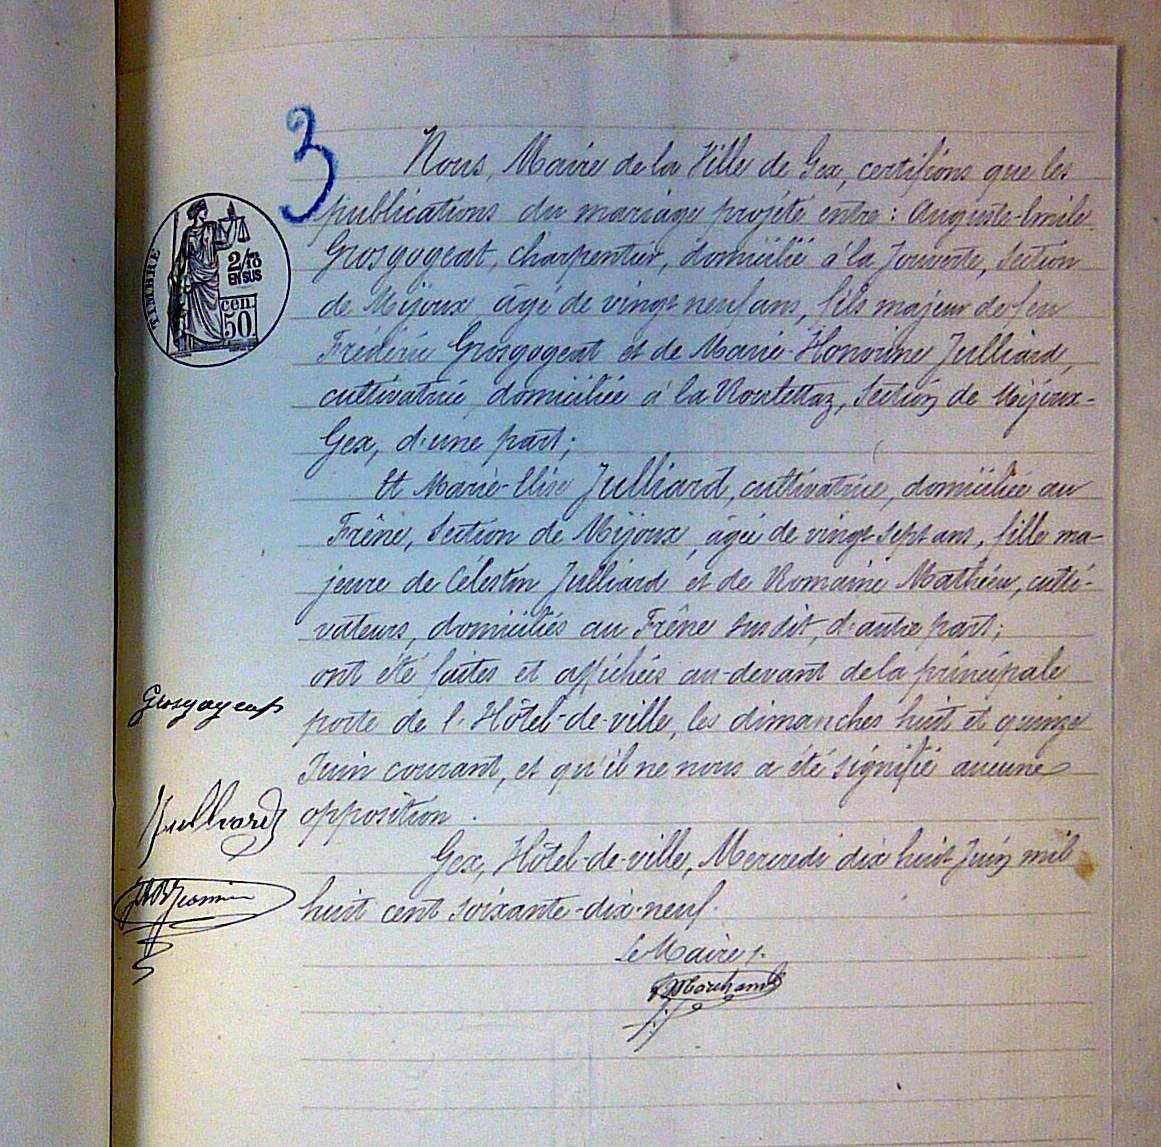 3
Nous, Maire de la Ville de Gex, certifions que les
publications du mariage projété entre : Auguste-Emile
Grosgogeat, charpentier, domicilié à la Jouverte, Section
de Mijoux, âgé de vingt-neuf ans, fils majeur de feu
Frédéric Grosgogeat et de Marie-Honorine Julliard,
cultivatrice, domiciliée à la Section de Mijoux-
Gex, d'une part;
Et Marie-Elise Julliard, cultivatrice, domiciliée au
Frêne, Section de Mijoux, âgée de vingt-sept ans, fille ma-
jeure de Célestin Julliard et de Romaine Mathieu, culti-
vateurs, domiciliés au Frêne susdit, d'autre part;
ont été faites et affichées au-devant de la principale
porte de l'Hôtel-de-ville, les dimanches huit et quinze
Juin courant, et qu'il ne nous a été signifié aucune
opposition.
Gex, Hôtel-de-ville, Mercredi dix huit Juin mil
huit cent soixante-dix-neuf.
Le Maire,
TIMBRE
2/10
EN SUS
cen
50.
Grosgogeat
Julliard